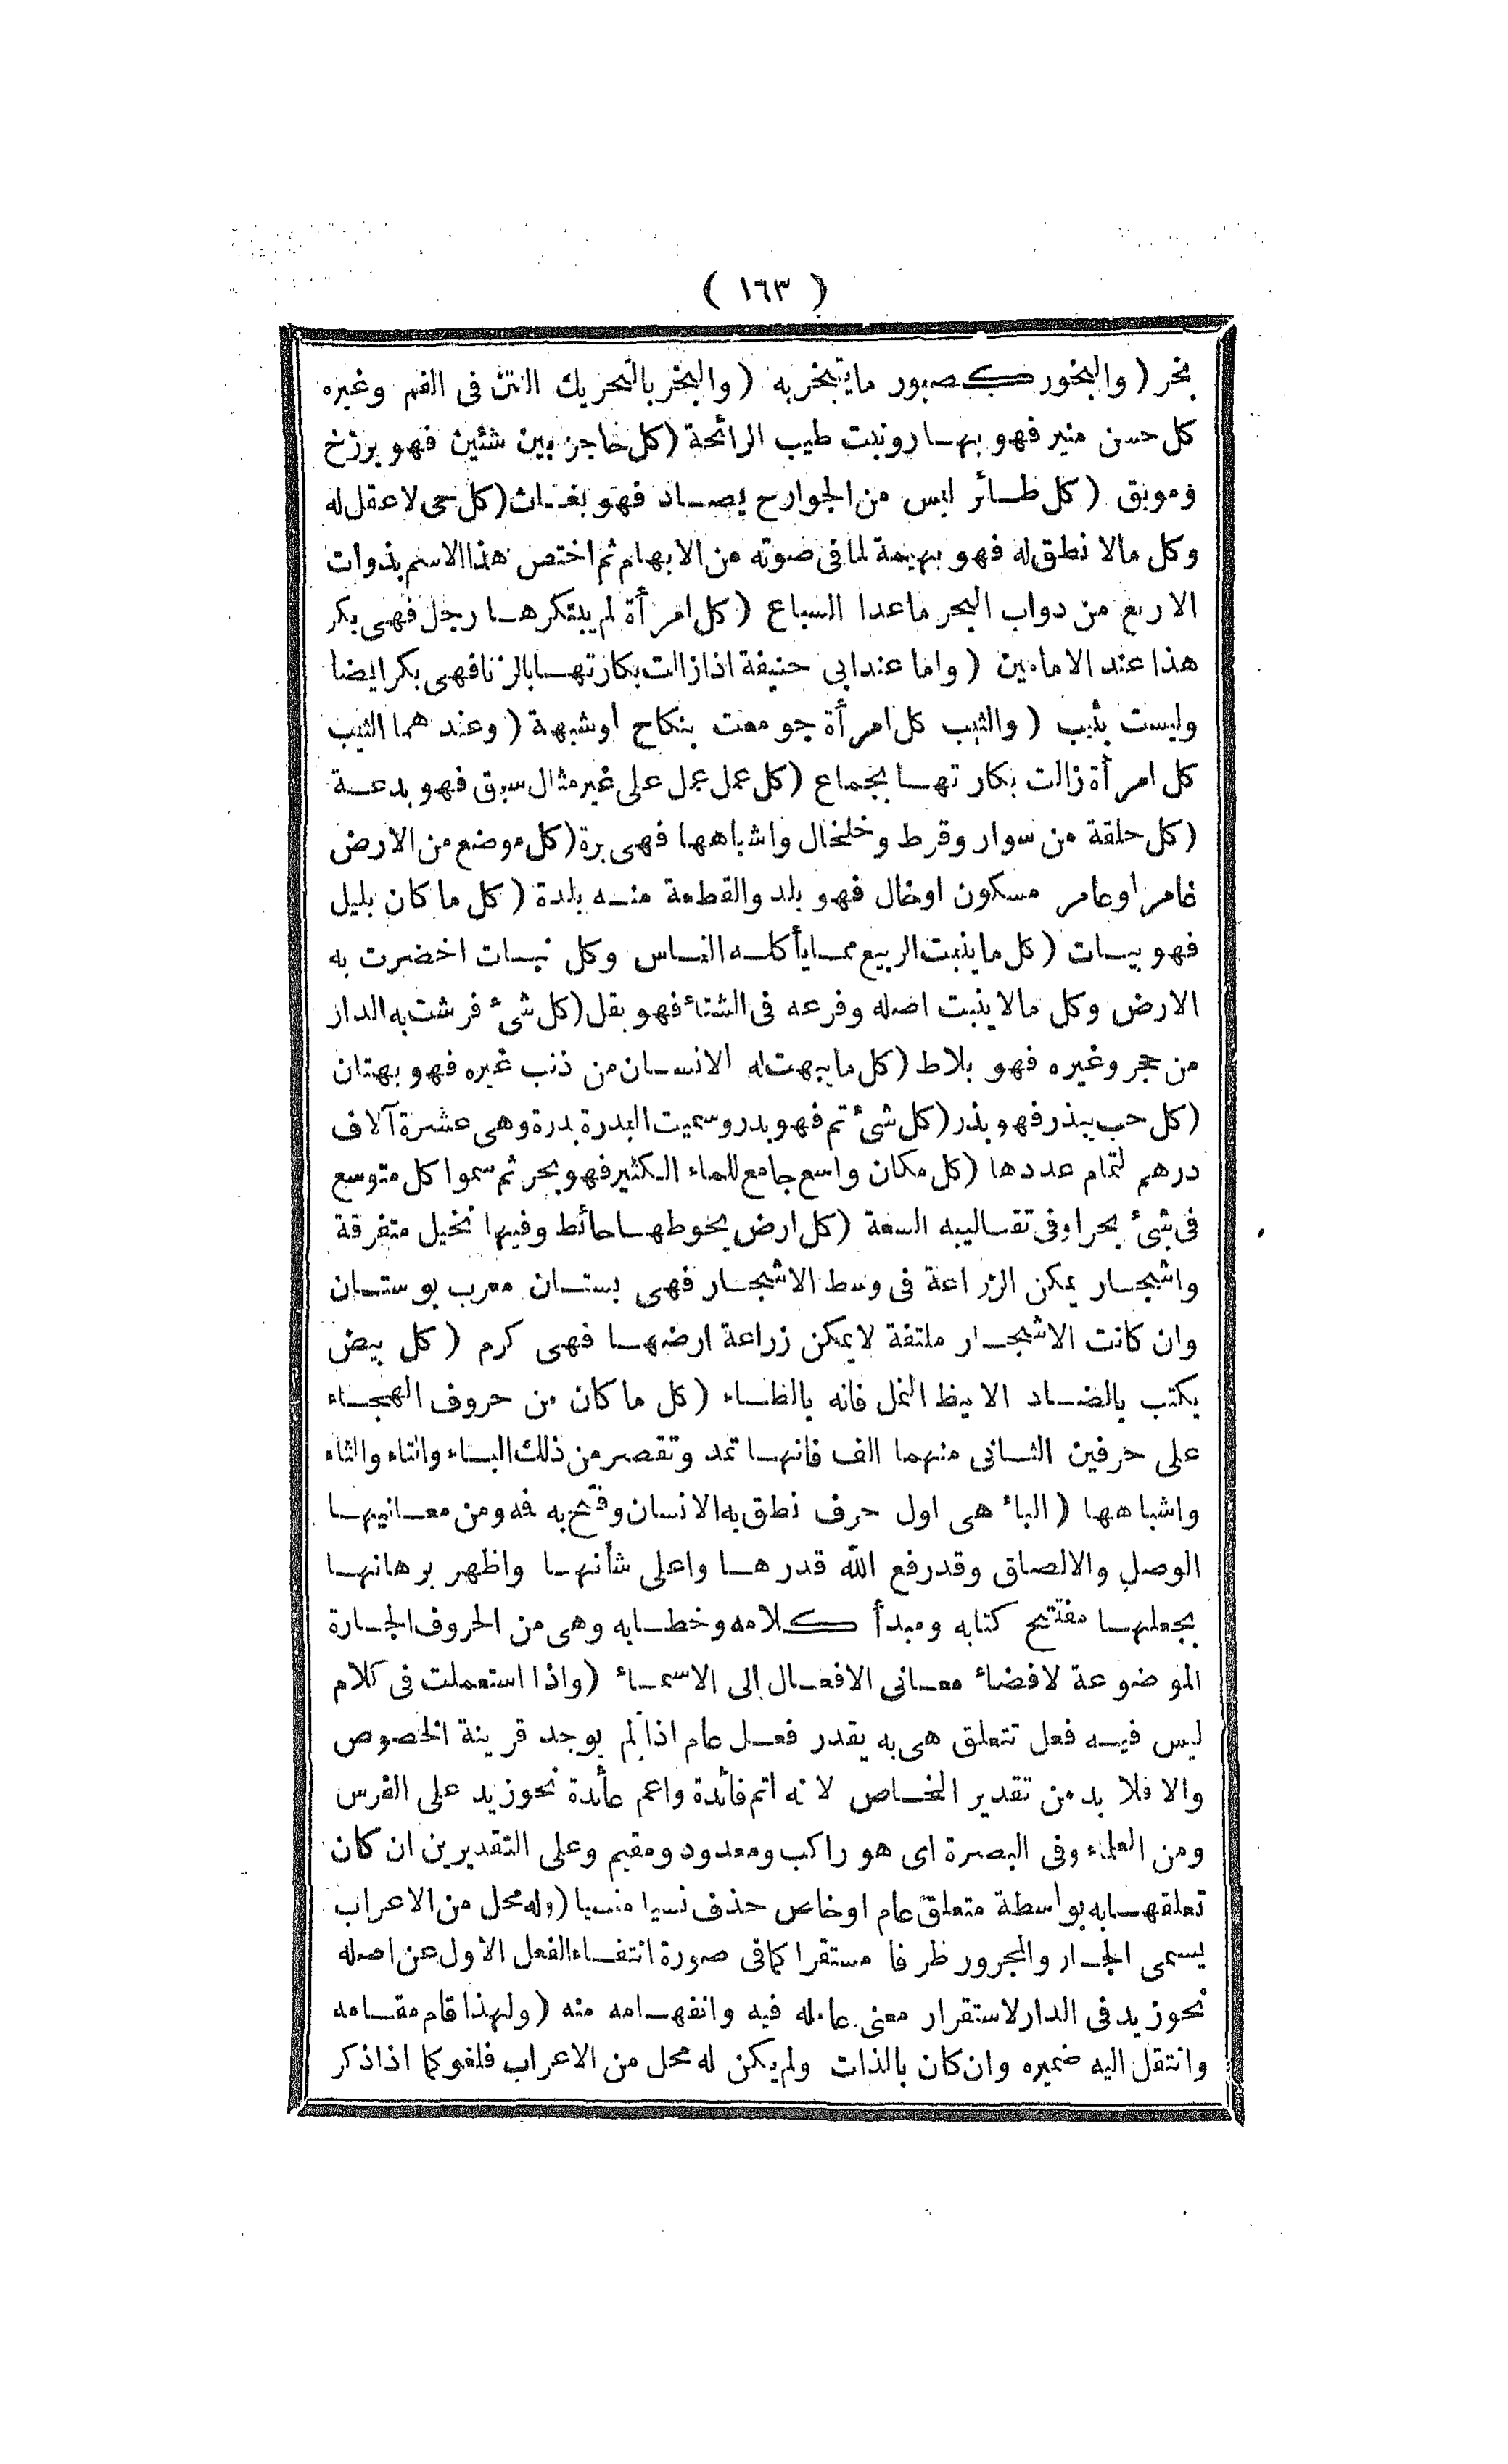 ( ١٦٣ )
بخر ( والبخور كصبور ما يتبخر به ( والبخر بالتحريك النتن فى الفم وغيره
كل حسن منير فهو بهار ونبت طيب الرائحة ( كل حاجز بين شئين فهو برزخ
وموبق ( كل طائر ليس من الجوارح يصاد فهو بغاث ( كل حى لا عقل له
وكل مالا نطق له فهو بهيمة لما فى صوته من الابهام ثم اختص هذا الاسم بذوات
الاربع من دواب البحر ما عدا السباع ( كل امرأة لم يبتكرها رجل فهى بكر
هذا عند الامامين ( واما عند ابى حنيفة اذا زالت بكارتها بالزنا فهى بكر ايضا
وليست بثيب ( والثيب كل امرأة جومعت بنكاح او شبهة ( وعندهما الثيب
كل امرأة زالت بكارتها بجماع ( كل عمل عمل على غير مثال سبق فهو بدعة
( كل حلقة من سوار وقرط وخلخال واشباهها فهى برة ( كل موضع من الارض
غامر او عامر مسكون او خال فهو بلد والقطعة منه بلدة ( كل ما كان بليل
فهو بيات ( كل ما ينبت الربيع مما يأكله الناس وكل نبات اخضرت به
الارض وكل مالا ينبت اصله وفرعه فى الشتاء فهو بقل ( كل شئ فرشت به الدار
من حجر وغيره فهو بلاط ( كل ما يبهت له الانسان من ذنب غيره فهو بهتان
( كل حب يبذر فهو بذر ( كل شئ تم فهو بدر وسميت البدرة بدرة وهى عشرة آلاف
درهم لتمام عددها ( كل مكان واسع جامع للماء الكثير فهو بحر ثم سموا كل متوسع
فى شئ بحرا وفى تقاليبه السعة ( كل ارض يحوطها حائط وفيها نخيل متفرقة
واشجار يمكن الزراعة فى وسط الاشجار فهى بستان معرب بوستان
وان كانت الاشجار ملتفة لا يمكن زراعة ارضها فهى كرم ( كل بيض
يكتب بالضاد الا بيظ النمل فانه بالظاء ( كل ما كان من حروف الهجاء
على حرفين الثانى منهما الف فانها تمد وتقصر من ذلك الباء والتاء والثاء
واشباهها ( الباء هى اول حرف نطق به الانسان وفتح به فه ومن معانيها
الوصل والالصاق وقد رفع الله قدرها واعلى شأنها واظهر برهانها
بجعلها مفتتح كتابه ومبدأ كلامه وخطابه وهى من الحروف الجارة
الموضوعة لافضاء معانى الافعال الى الاسماء ( واذا استعملت فى كلام
ليس فيه فعل تتعلق هى به يقدر فعل عام اذا لم يوجد قرينة الخصوص
والا فلا بد من تقدير الخاص لانه اتم فائدة واعم عائدة نحو زيد على الفرس
ومن العلماء وفى البصرة اى هو راكب ومعدود ومقيم وعلى التقديرين ان كان
تعلقها به بواسطة متعلق عام او خاص حذف نسيا منسيا ( وله محل من الاعراب
يسمى الجار والمجرور ظرفا مستقرا كما فى صورة انتفاء الفعل الاول عن اصله
نحو زيد فى الدار لاستقرار معنى عامله فيه وانفهامه منه ( ولهذا قام مقامه
وانتقل اليه ضميره وان كان بالذات ولم يكن له محل من الاعراب فلغو كما اذا ذكر